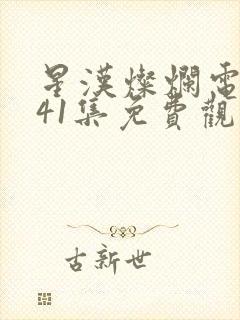 星漢燦爛電
41集免費觀
古新世